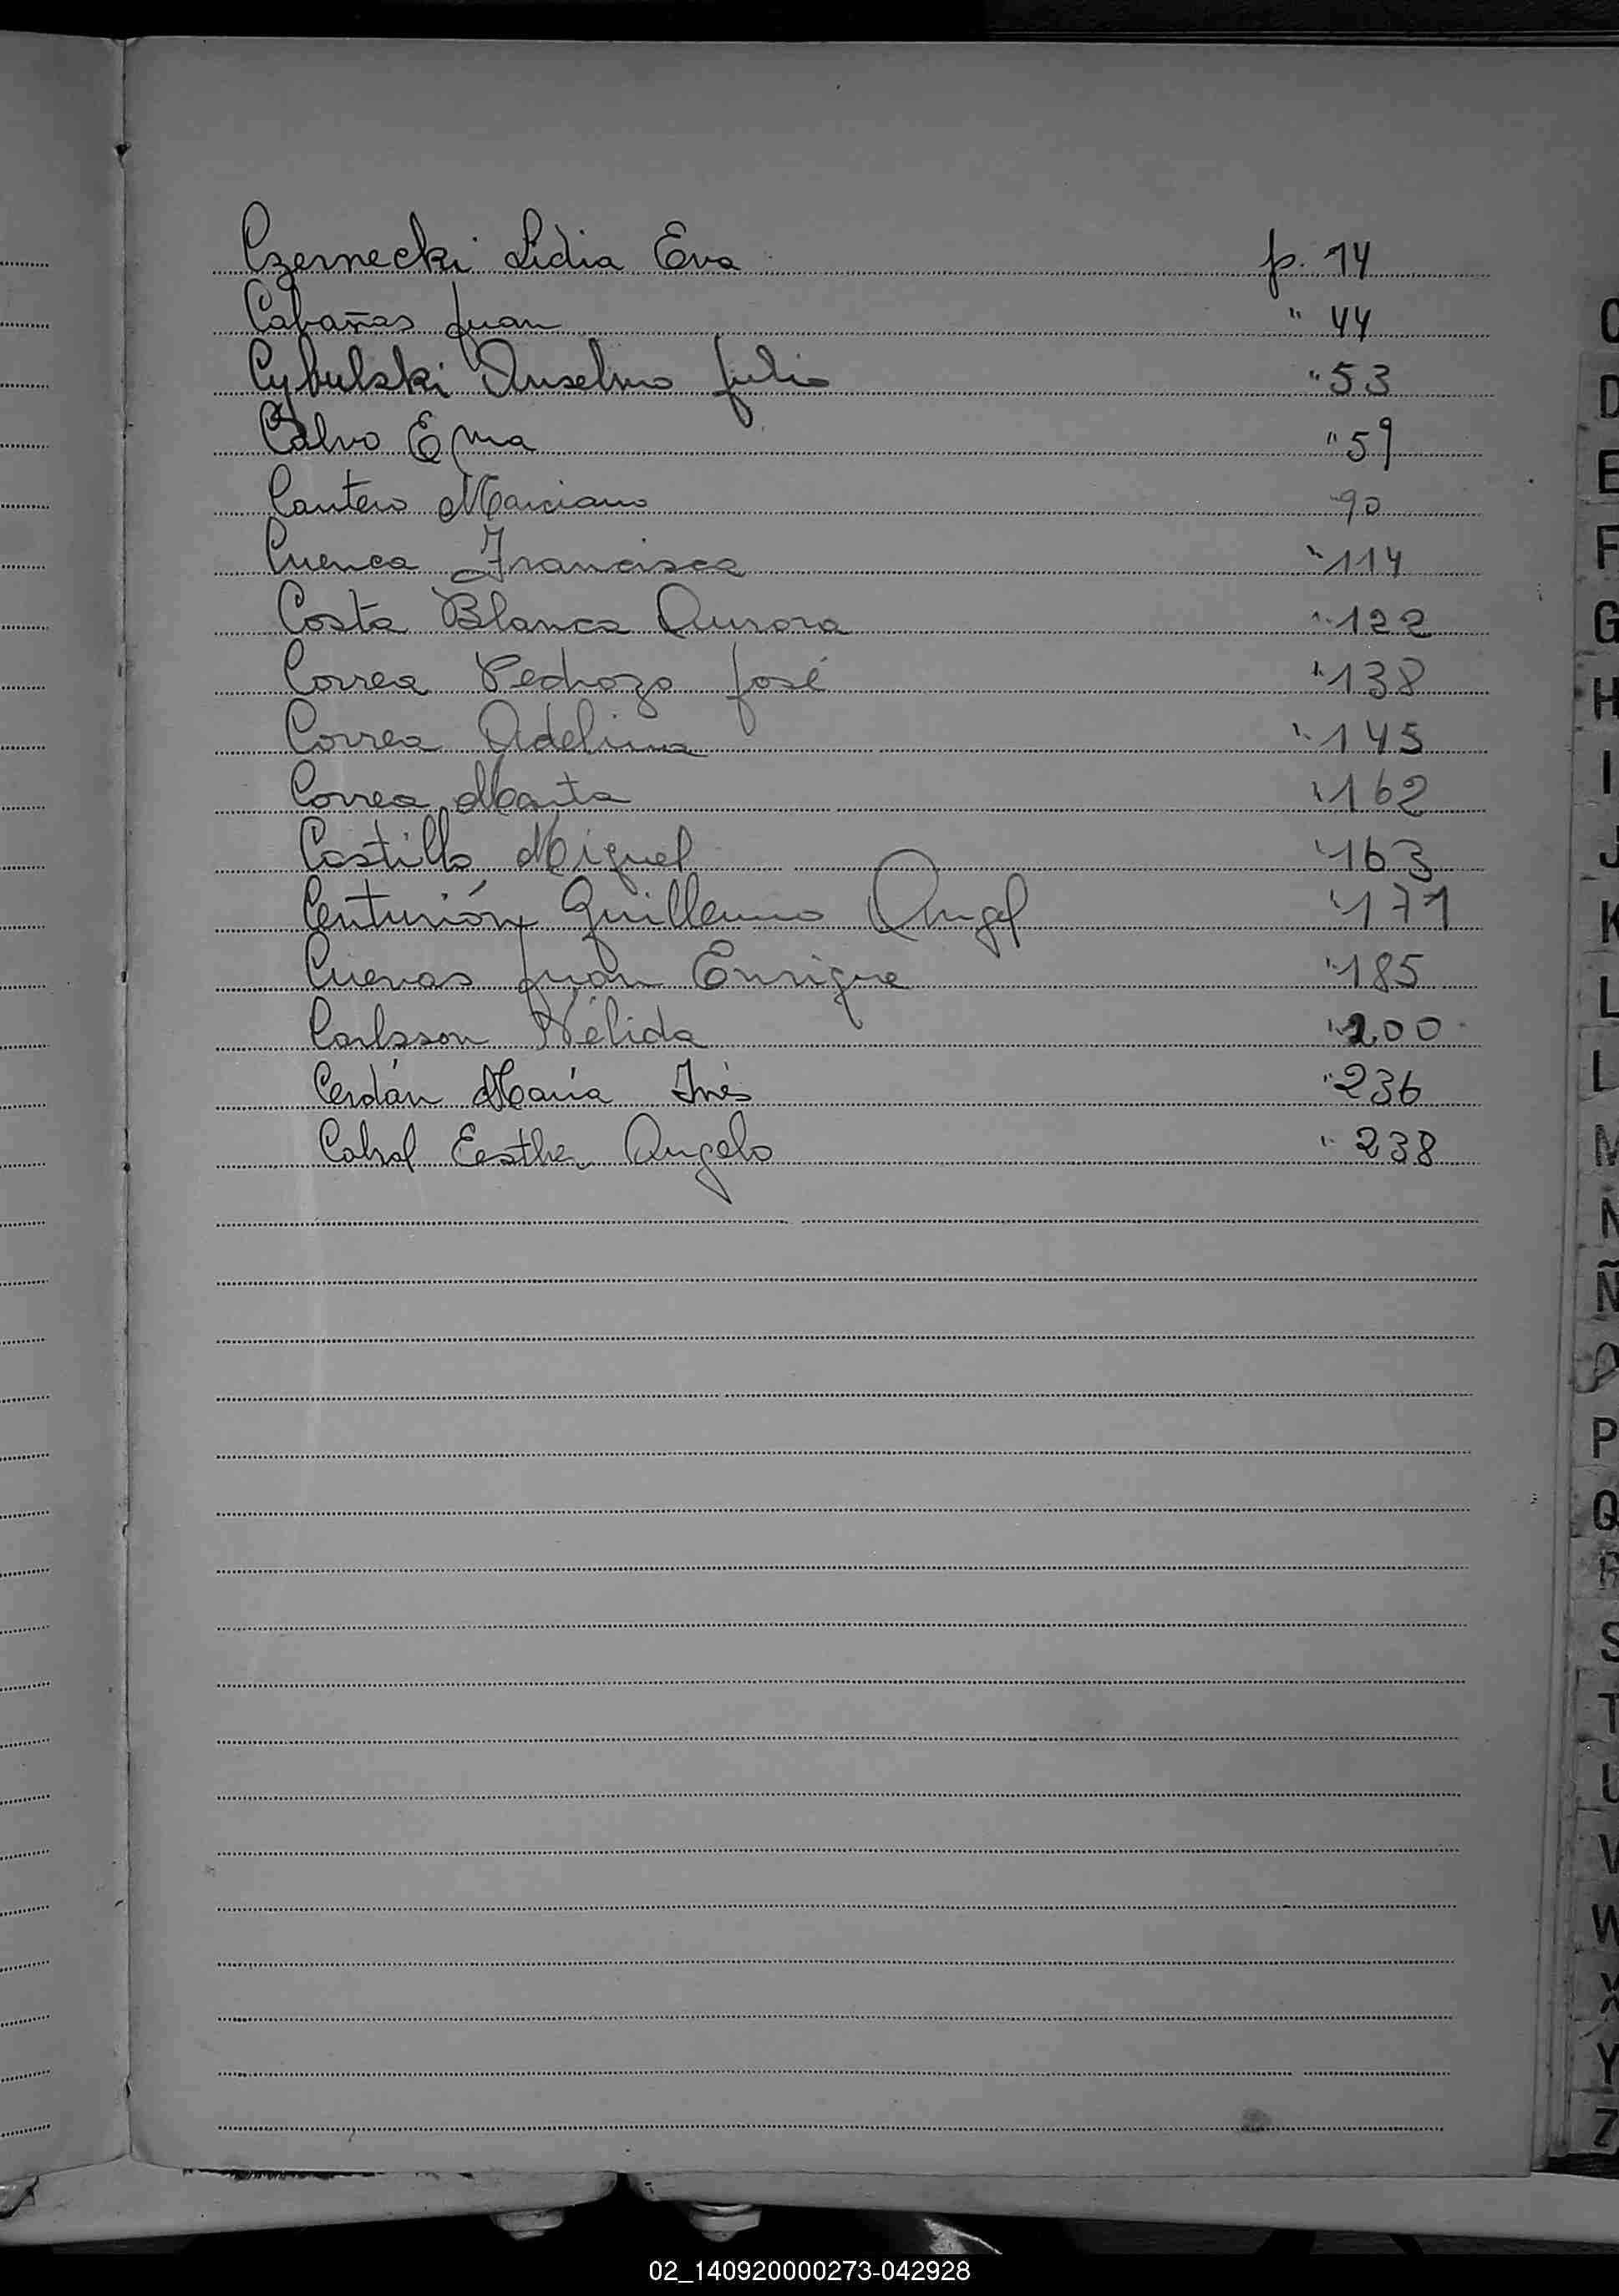 Czernecki Lidia Eva p. 14
Cabañas Juan " 44
Cybulski Anselmo Julio " 53
Calvo Ema " 59
Cantero Marciano " 90
Cuenca Francisca " 114
Costa Blanca Aurora " 122
Correa Pedrozo José " 138
Correa Adelina " 145
Correa Marta " 162
Castillo Miguel " 163
Centurión Guillermo Angel " 171
Cuevas Juan Enrique " 185
Carlsson Nélida " 200
Cerdán María Inés " 236
Cabral Eesther Angela " 238
C
D
E
F
G
H
I
J
K
L
L
M
N
Ñ
O
P
Q
R
S
T
U
V
W
X
Y
Z
02_140920000273-042928